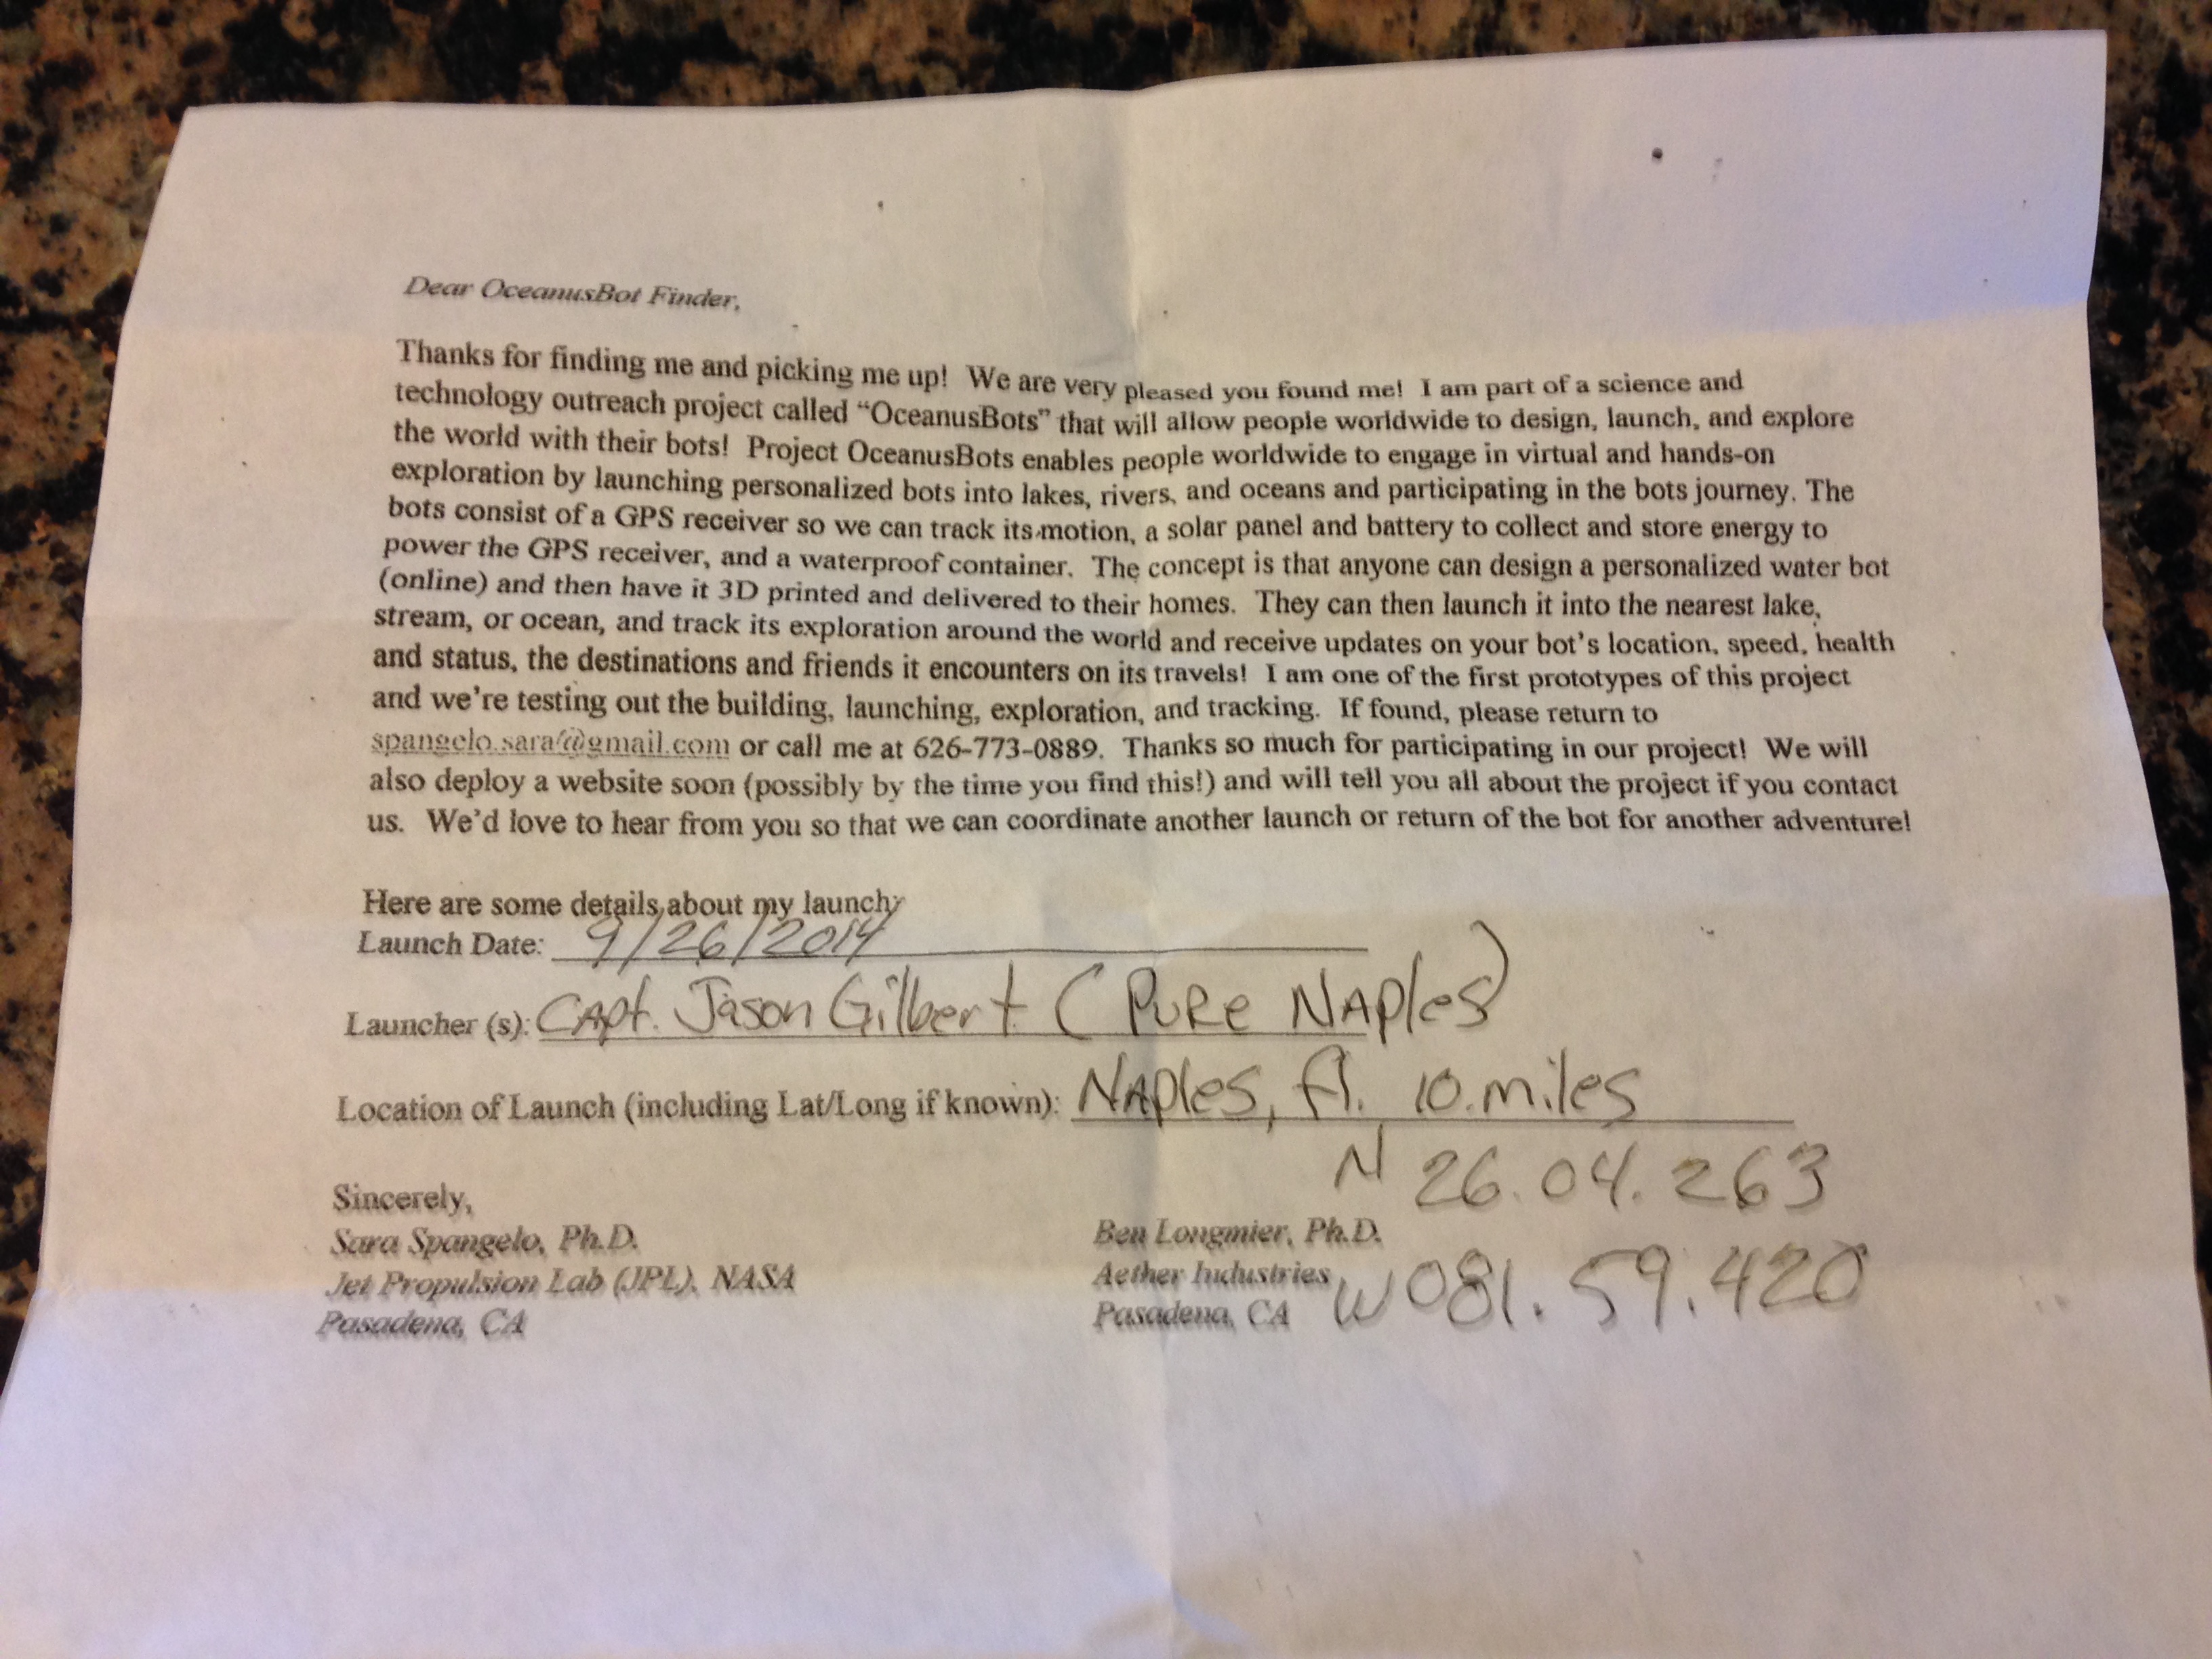 Dear OceanusBot Finder,
Thanks for finding me and picking me up! We are very pleased you found me! I am part of a science and
technology outreach project called “OceanusBots” that will allow people worldwide to design, launch, and explore
the world with their bots! Project OceanusBots enables people worldwide to engage in virtual and hands-on
exploration by launching personalized bots into lakes, rivers, and oceans and participating in the bots journey. The
bots consist of a GPS receiver so we can track its motion, a solar panel and battery to collect and store energy to
power the GPS receiver, and a waterproof container. The concept is that anyone can design a personalized water bot
(online) and then have it 3D printed and delivered to their homes. They can then launch it into the nearest lake,
stream, or ocean, and track its exploration around the world and receive updates on your bot’s location, speed, health
and status, the destinations and friends it encounters on its travels! I am one of the first prototypes of this project
and we’re testing out the building, launching, exploration, and tracking. If found, please return to
spangelo.sara@gmail.com or call me at 626-773-0889. Thanks so much for participating in our project! We will
also deploy a website soon (possibly by the time you find this!) and will tell you all about the project if you contact
us. We’d love to hear from you so that we can coordinate another launch or return of the bot for another adventure!
Here are some details about my launch:
Launch Date: 9/26/2014
Launcher (s): CAPt. Jason Gilbert (PURe NAples)
Location of Launch (including Lat/Long if known): NAples, Fl. 10.miles
N 26.04.263
Sincerely,
Sara Spangelo, Ph.D. Ben Longmier, Ph.D.
Jet Propulsion Lab (JPL), NASA Aether Industries W081.59.420
Pasadena, CA Pasadena, CA